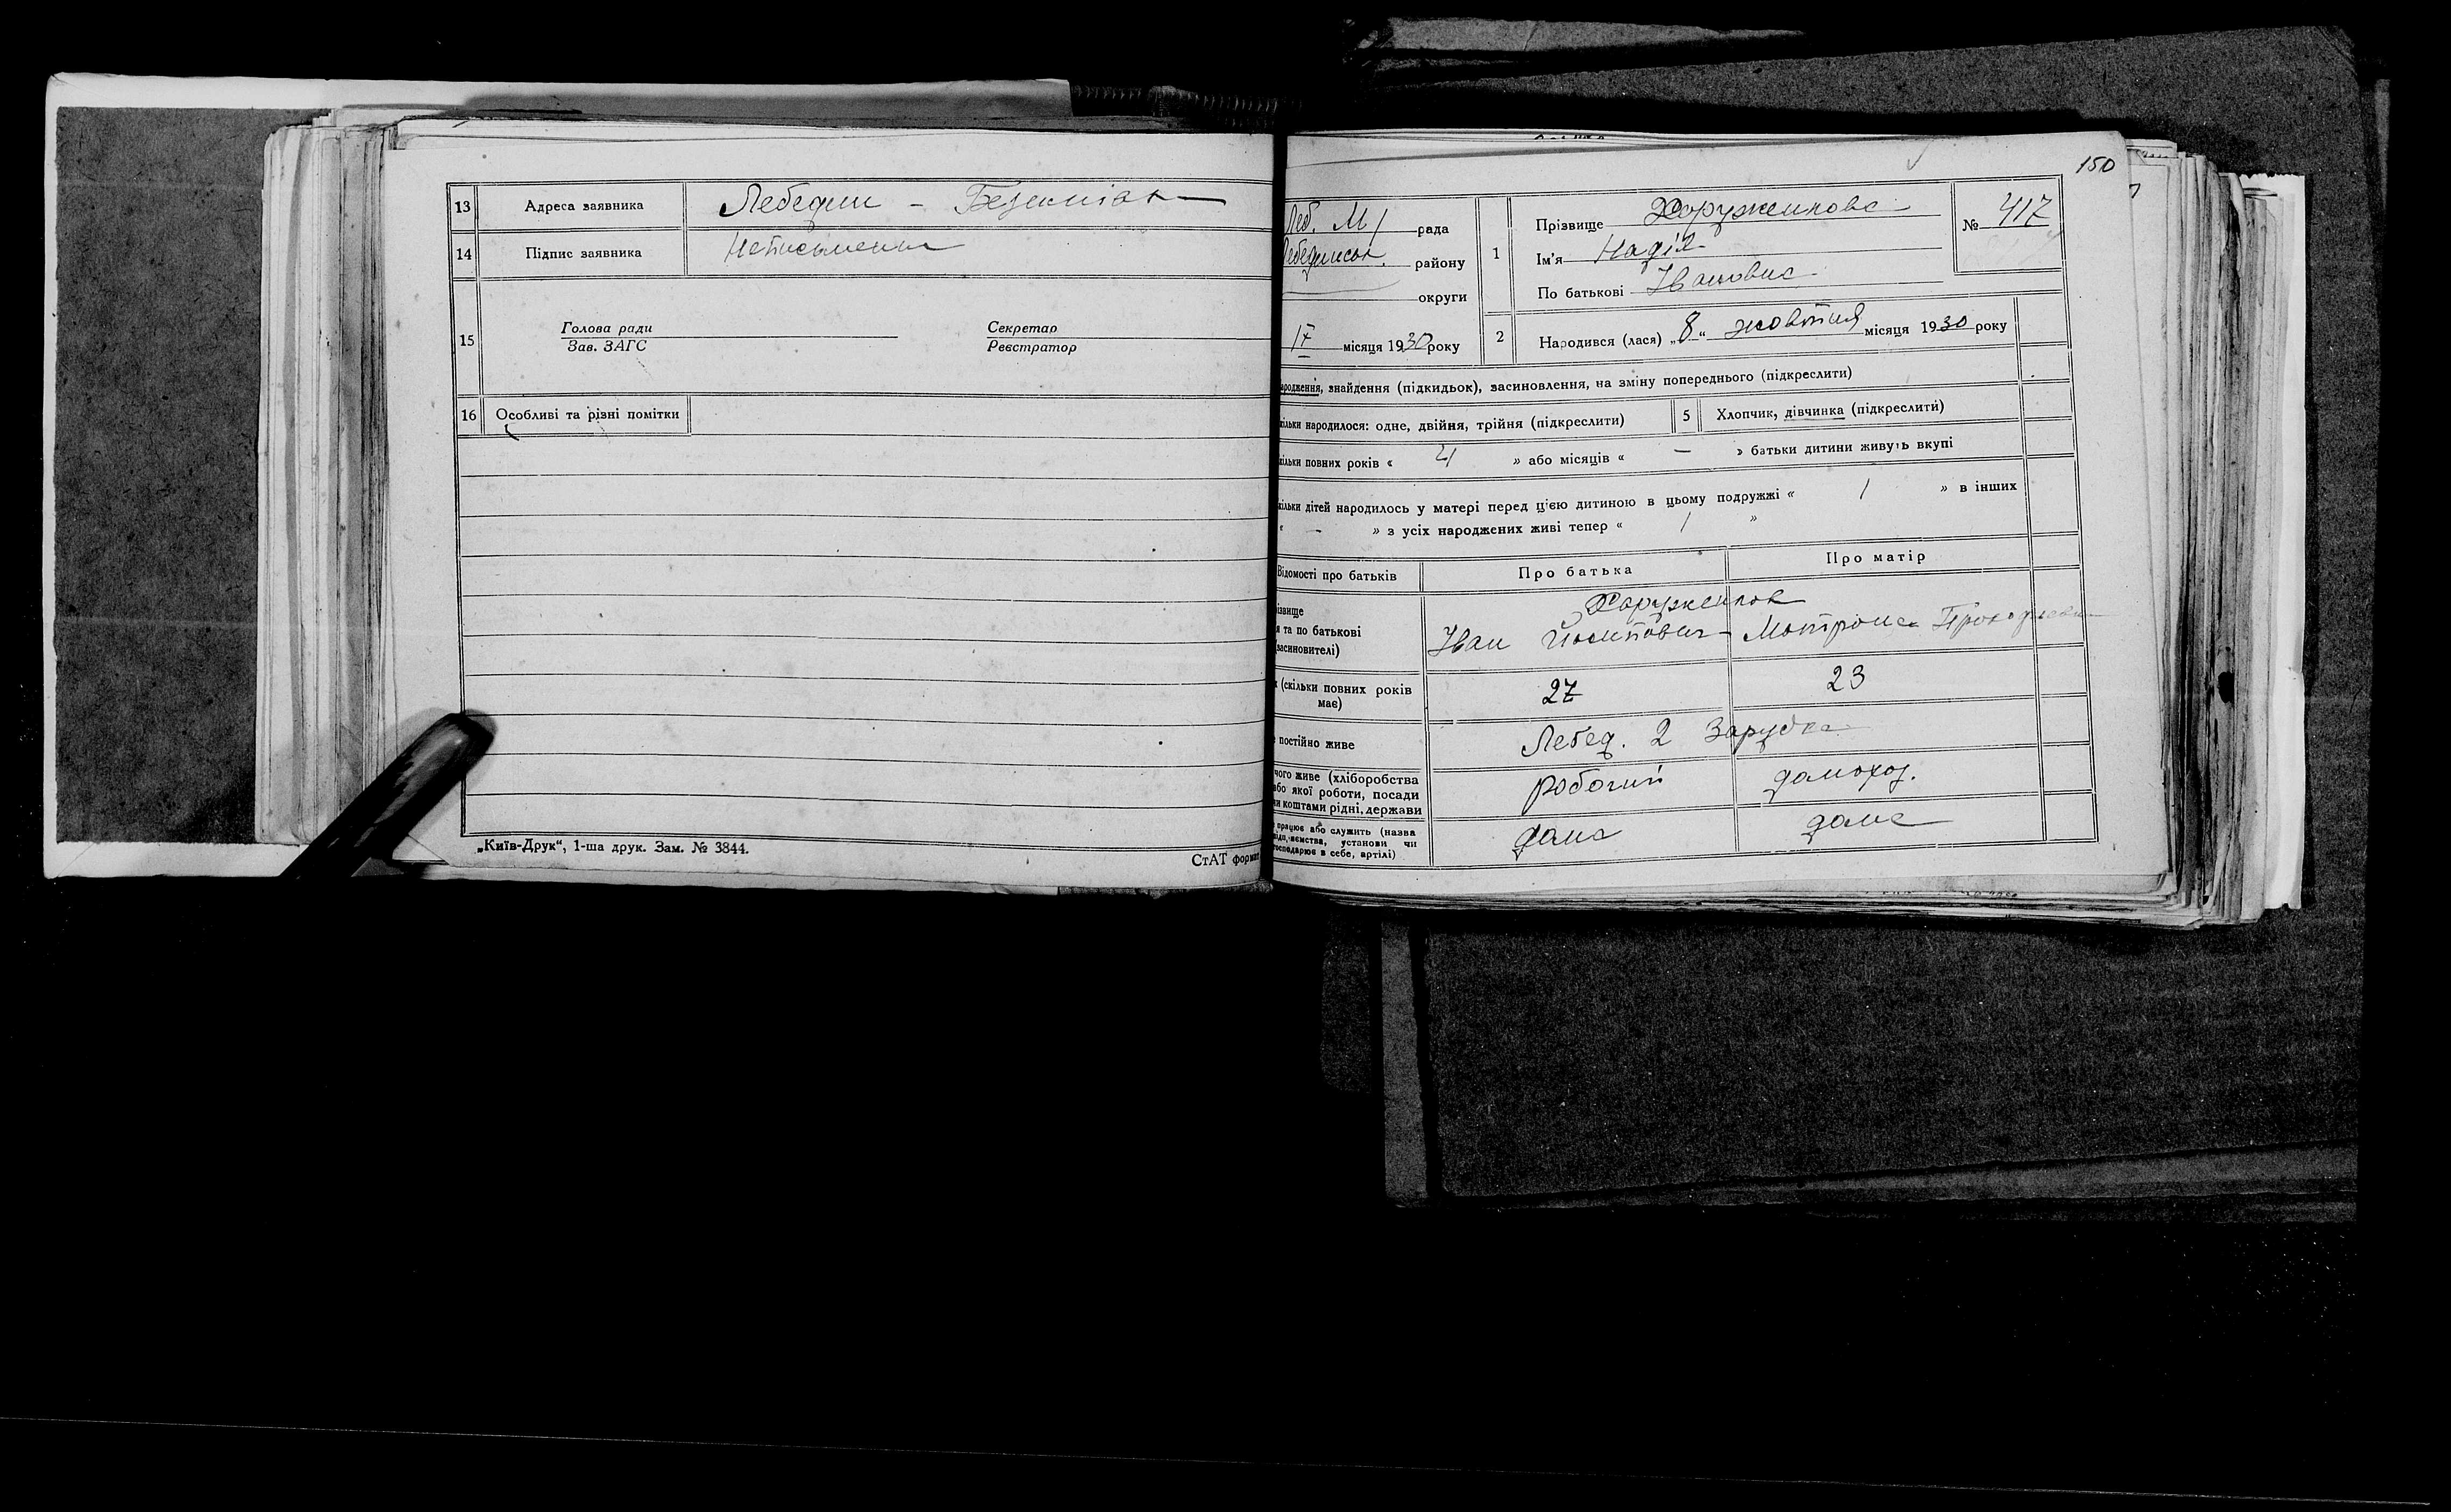 13 Адреса заявника Лебедин –
14 Підпис заявника Неписьменний
15 Голова ради Секретар
Зав. ЗАГС Реєстратор
16 Особливі та різні помітки
„Київ-Друк“, 1-ша друк. Зам. № 3844.
СтАТ формат
150
Леб. М/ рада
Лебединськ. району
округи
17 місяця 1930 року
1 Прізвище Харуженкова
Ім'я Надія
По батькові Івановна
№ 417
2 Народився (лася) „8“ жовтня місяця 1930 року
ародження, знайдення (підкидьок), засиновлення, на зміну попереднього (підкреслити)
кільки народилося: одне, двійня, трійня (підкреслити) 5 Хлопчик, дівчинка (підкреслити)
кільки повних років « 4 » або місяців « – » батьки дитини живуть вкупі
кільки дітей народилось у матері перед цією дитиною в цьому подружжі « 1 » в інших
« – » з усіх народжених живі тепер « 1 »
Відомості про батьків Про батька Про матір
ізвище Харуженков
я та по батькові Іван Йосипович Мотрона
засиновителі)
к (скільки повних років має) 27 23
е постійно живе Лебед. 2 Зарудка
чого живе (хліборобства робочий домохоз.
або якої роботи, посади
ки коштами рідні, держави
працює або служить (назва дома дома
установи чи
господарює в себе, артілі)